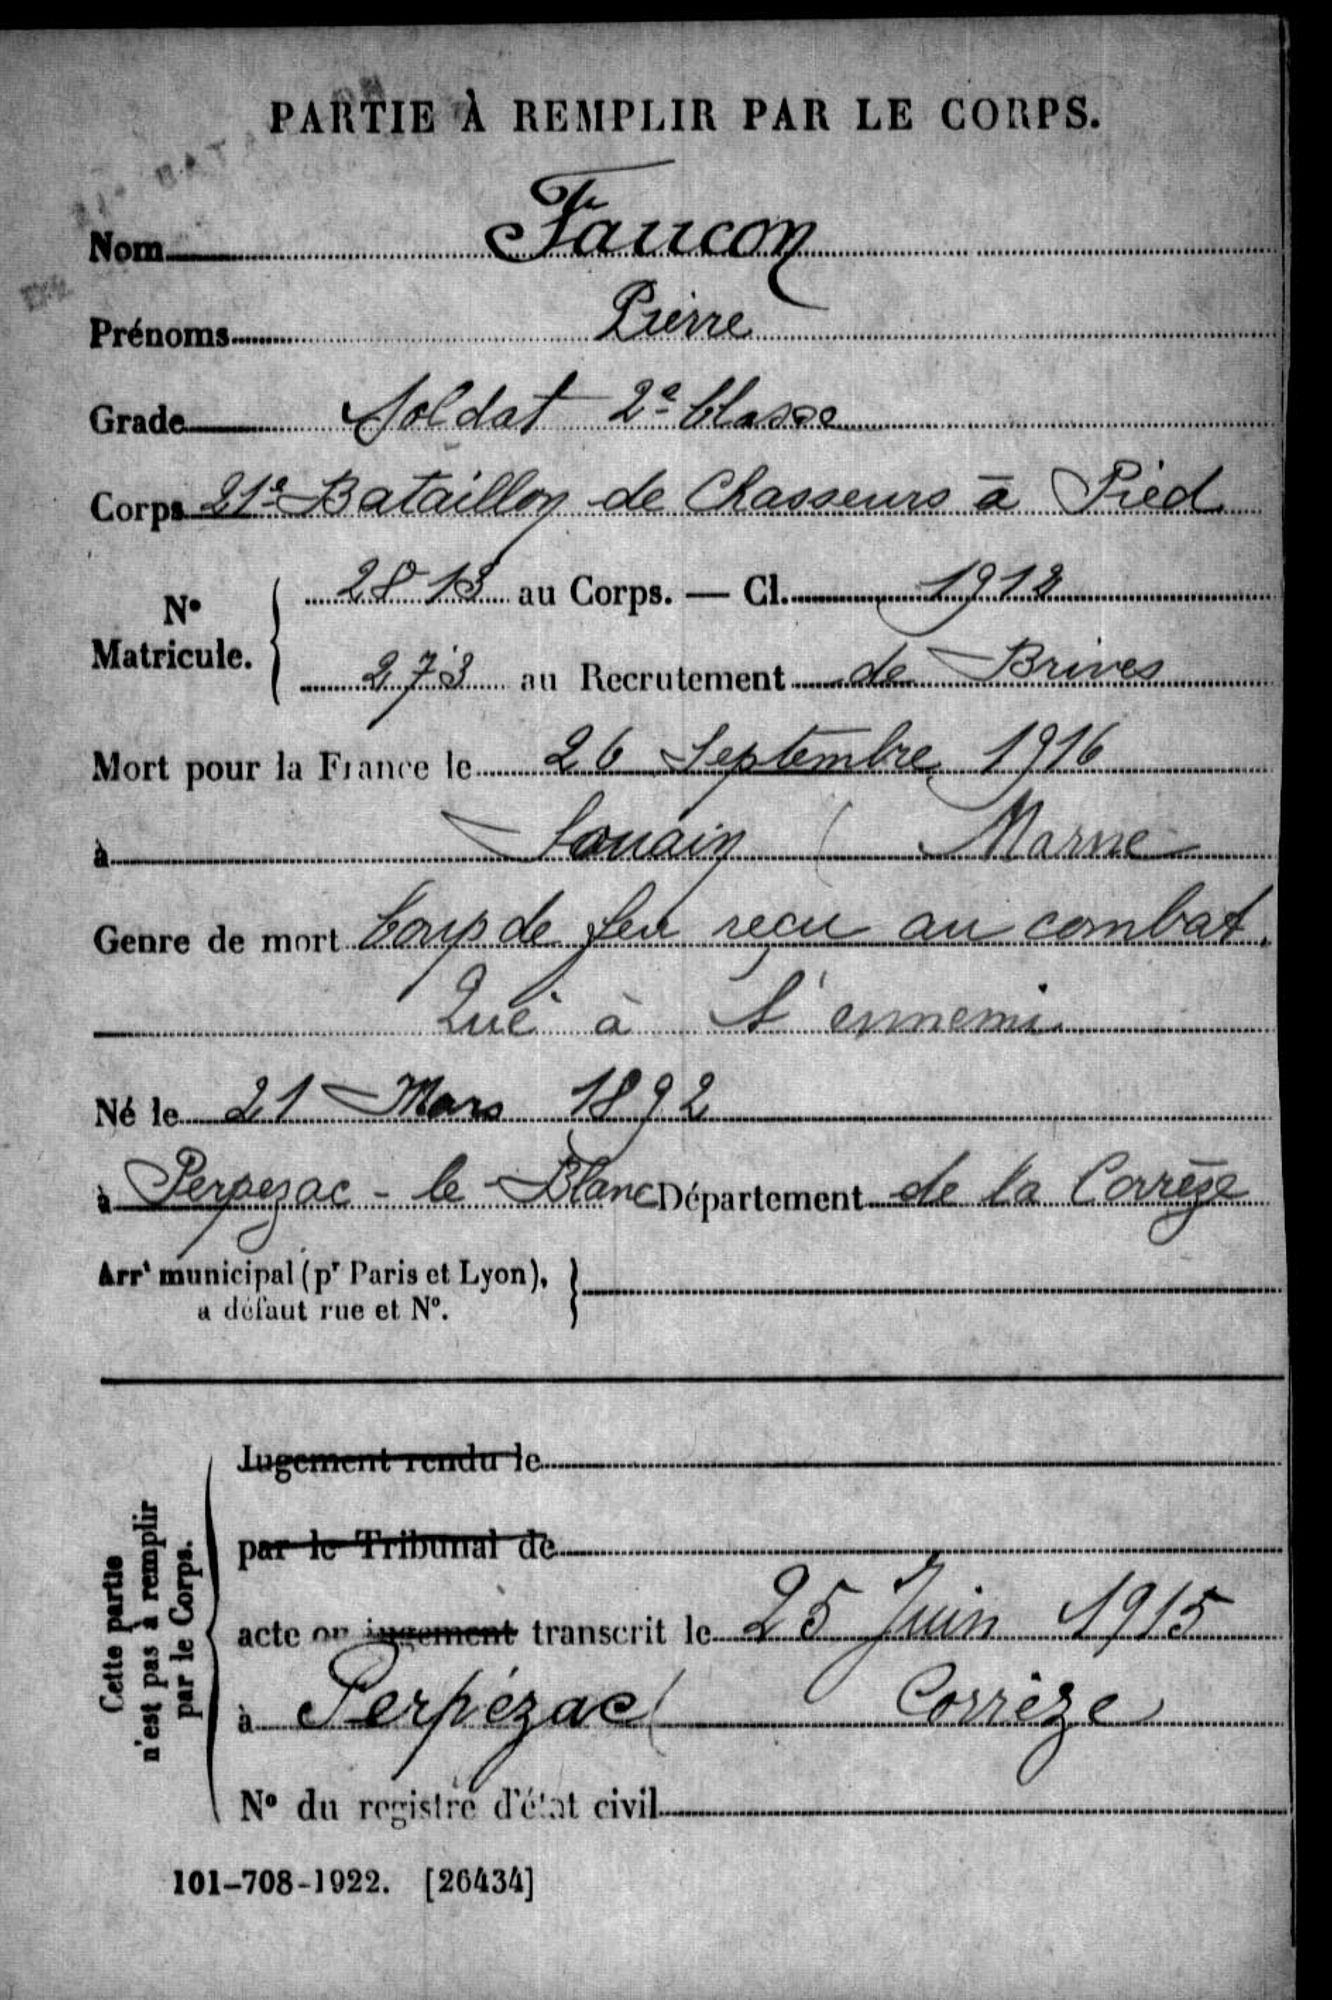 PARTIE À REMPLIR PAR LE CORPS.
Nom Faucon
Prénoms Pierre
Grade Soldat 2e Classe
Corps 21e Bataillon de Chasseurs à Pied
N° Matricule. { 2813 au Corps. — Cl. 1912
273 au Recrutement de Brives
Mort pour la France le 26 Septembre 1916
à Souain ( Marne
Genre de mort Coup de feu reçu au combat.
Tué à l'ennemi
Né le 21 Mars 1892
à Perpezac - le - Blanc Département de la Corrèze
Arrt municipal (pr Paris et Lyon), }
a défaut rue et N°.
Cette partie
n'est pas à remplir
par le Corps.
Jugement rendu le
par le Tribunal de
acte ou jugement transcrit le 25 Juin 1915
à Perpézac ( Corrèze
N° du registre d'état civil
101-708-1922. [26434]